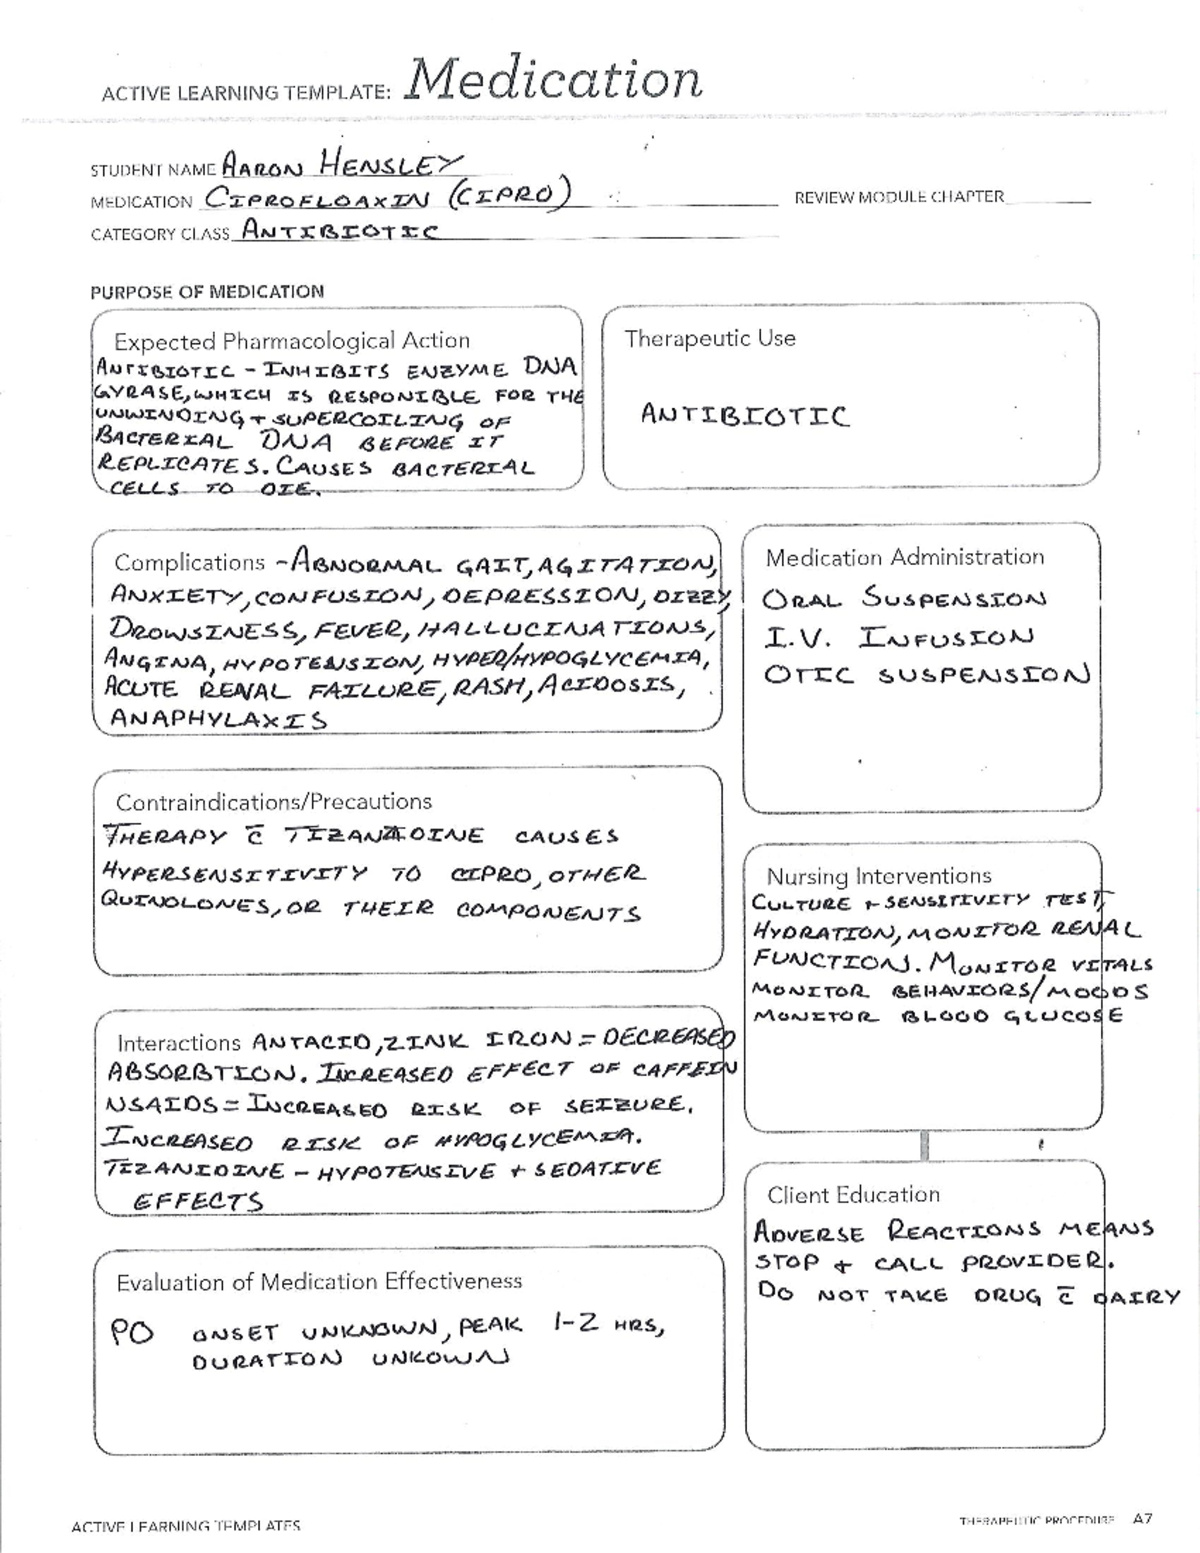 ACTIVE LEARNING TEMPLATE: Medication
STUDENT NAME AARON HENSLEY
MEDICATION CIPROFLOAXIN (CIPRO)
REVIEW MODULE CHAPTER
CATEGORY CLASS ANTIBIOTIC
PURPOSE OF MEDICATION
Expected Pharmacological Action
ANTIBIOTIC - INHIBITS ENZYME DNA
GYRASE, WHICH IS RESPONIBLE FOR THE
UNWINDING + SUPERCOILING OF
BACTERIAL DNA BEFORE IT
REPLICATES. CAUSES BACTERIAL
CELLS TO DIE.
Therapeutic Use
ANTIBIOTIC
Complications - ABNORMAL GAIT, AGITATION,
ANXIETY, CONFUSION, DEPRESSION, DIZZY,
DROWSINESS, FEVER, HALLUCINATIONS,
ANGINA, HYPOTENSION, HYPER/HYPOGLYCEMIA,
ACUTE RENAL FAILURE, RASH, ACIDOSIS,
ANAPHYLAXIS
Medication Administration
ORAL SUSPENSION
I.V. INFUSION
OTIC SUSPENSION
Contraindications/Precautions
THERAPY c̅ TIZANIDINE CAUSES
HYPERSENSITIVITY TO CIPRO, OTHER
QUINOLONES, OR THEIR COMPONENTS
Nursing Interventions
CULTURE + SENSITIVITY TEST,
HYDRATION, MONITOR RENAL
FUNCTION. MONITOR VITALS
MONITOR BEHAVIORS/MOODS
MONITOR BLOOD GLUCOSE
Interactions ANTACID, ZINK IRON = DECREASED
ABSORBTION. INCREASED EFFECT OF CAFFEIN
NSAIDS = INCREASED RISK OF SEIZURE.
INCREASED RISK OF HYPOGLYCEMIA.
TIZANIDINE - HYPOTENSIVE + SEDATIVE
EFFECTS
Client Education
ADVERSE REACTIONS MEANS
STOP + CALL PROVIDER.
DO NOT TAKE DRUG c̅ DAIRY
Evaluation of Medication Effectiveness
PO ONSET UNKNOWN, PEAK 1-2 HRS,
DURATION UNKOWN
ACTIVE LEARNING TEMPLATES
THERAPEUTIC PROCEDURE A7